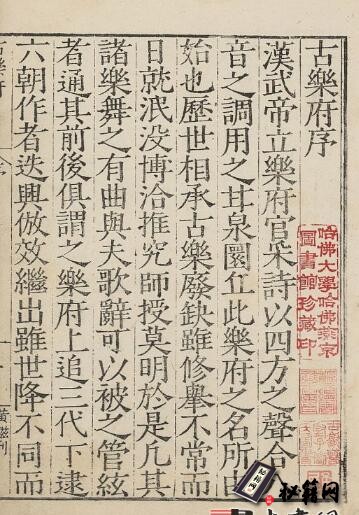 古樂府序
漢武帝立樂府官采詩以四方之聲合
音之調用之甘泉圜丘此樂府之名所
始也歷世相承古樂廢缺雖修舉不常而
日就泯没博洽推究師授莫明於是凢其
諸樂舞之有曲與夫歌辭可以被之管絃
者通其前後俱謂之樂府上追三代下逮
六朝作者迭興倣效繼出雖世降不同而
哈佛大學哈佛燕京
圖書館珍藏印
秘籍网